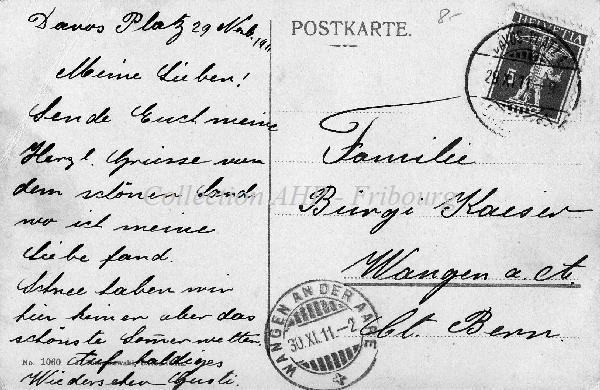 Davos Platz 29 Nov. 1911
POSTKARTE.
8.-
HELVETIA
Meine Lieben!
Sende Euch meine
Herzl. Grüsse von
dem schönen Land
wo ich meine
Liebe fand.
Schnee haben wir
hier keiner aber das
schönste Somerwetter.
Auf baldiges
Wiedersehen Gusti.
Familie
Bürgi Kaiser
Wangen a. A.
Ct. Bern.
WANGEN AN DER AARE
30.XI.11.-2
29.XI.11
No. 1060
Collection AHP - Fribourg